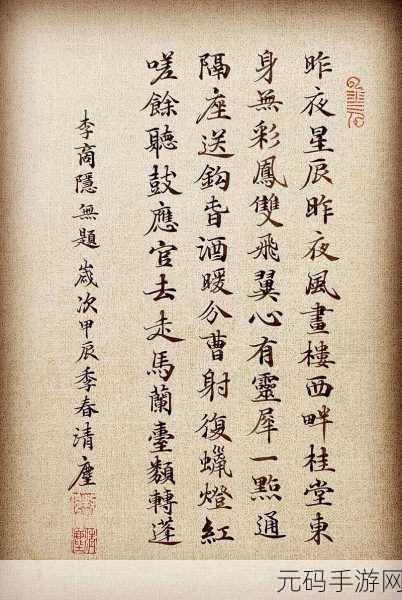 昨夜星辰昨夜風畫樓西畔桂堂東
身無彩鳳雙飛翼心有靈犀一點通
隔座送鈎旾酒暖分曹射復蠟燈紅
嗟餘聽鼓應官去走馬蘭臺類轉蓬
李商隱無題 歲次甲辰季春清塵
元码手游网